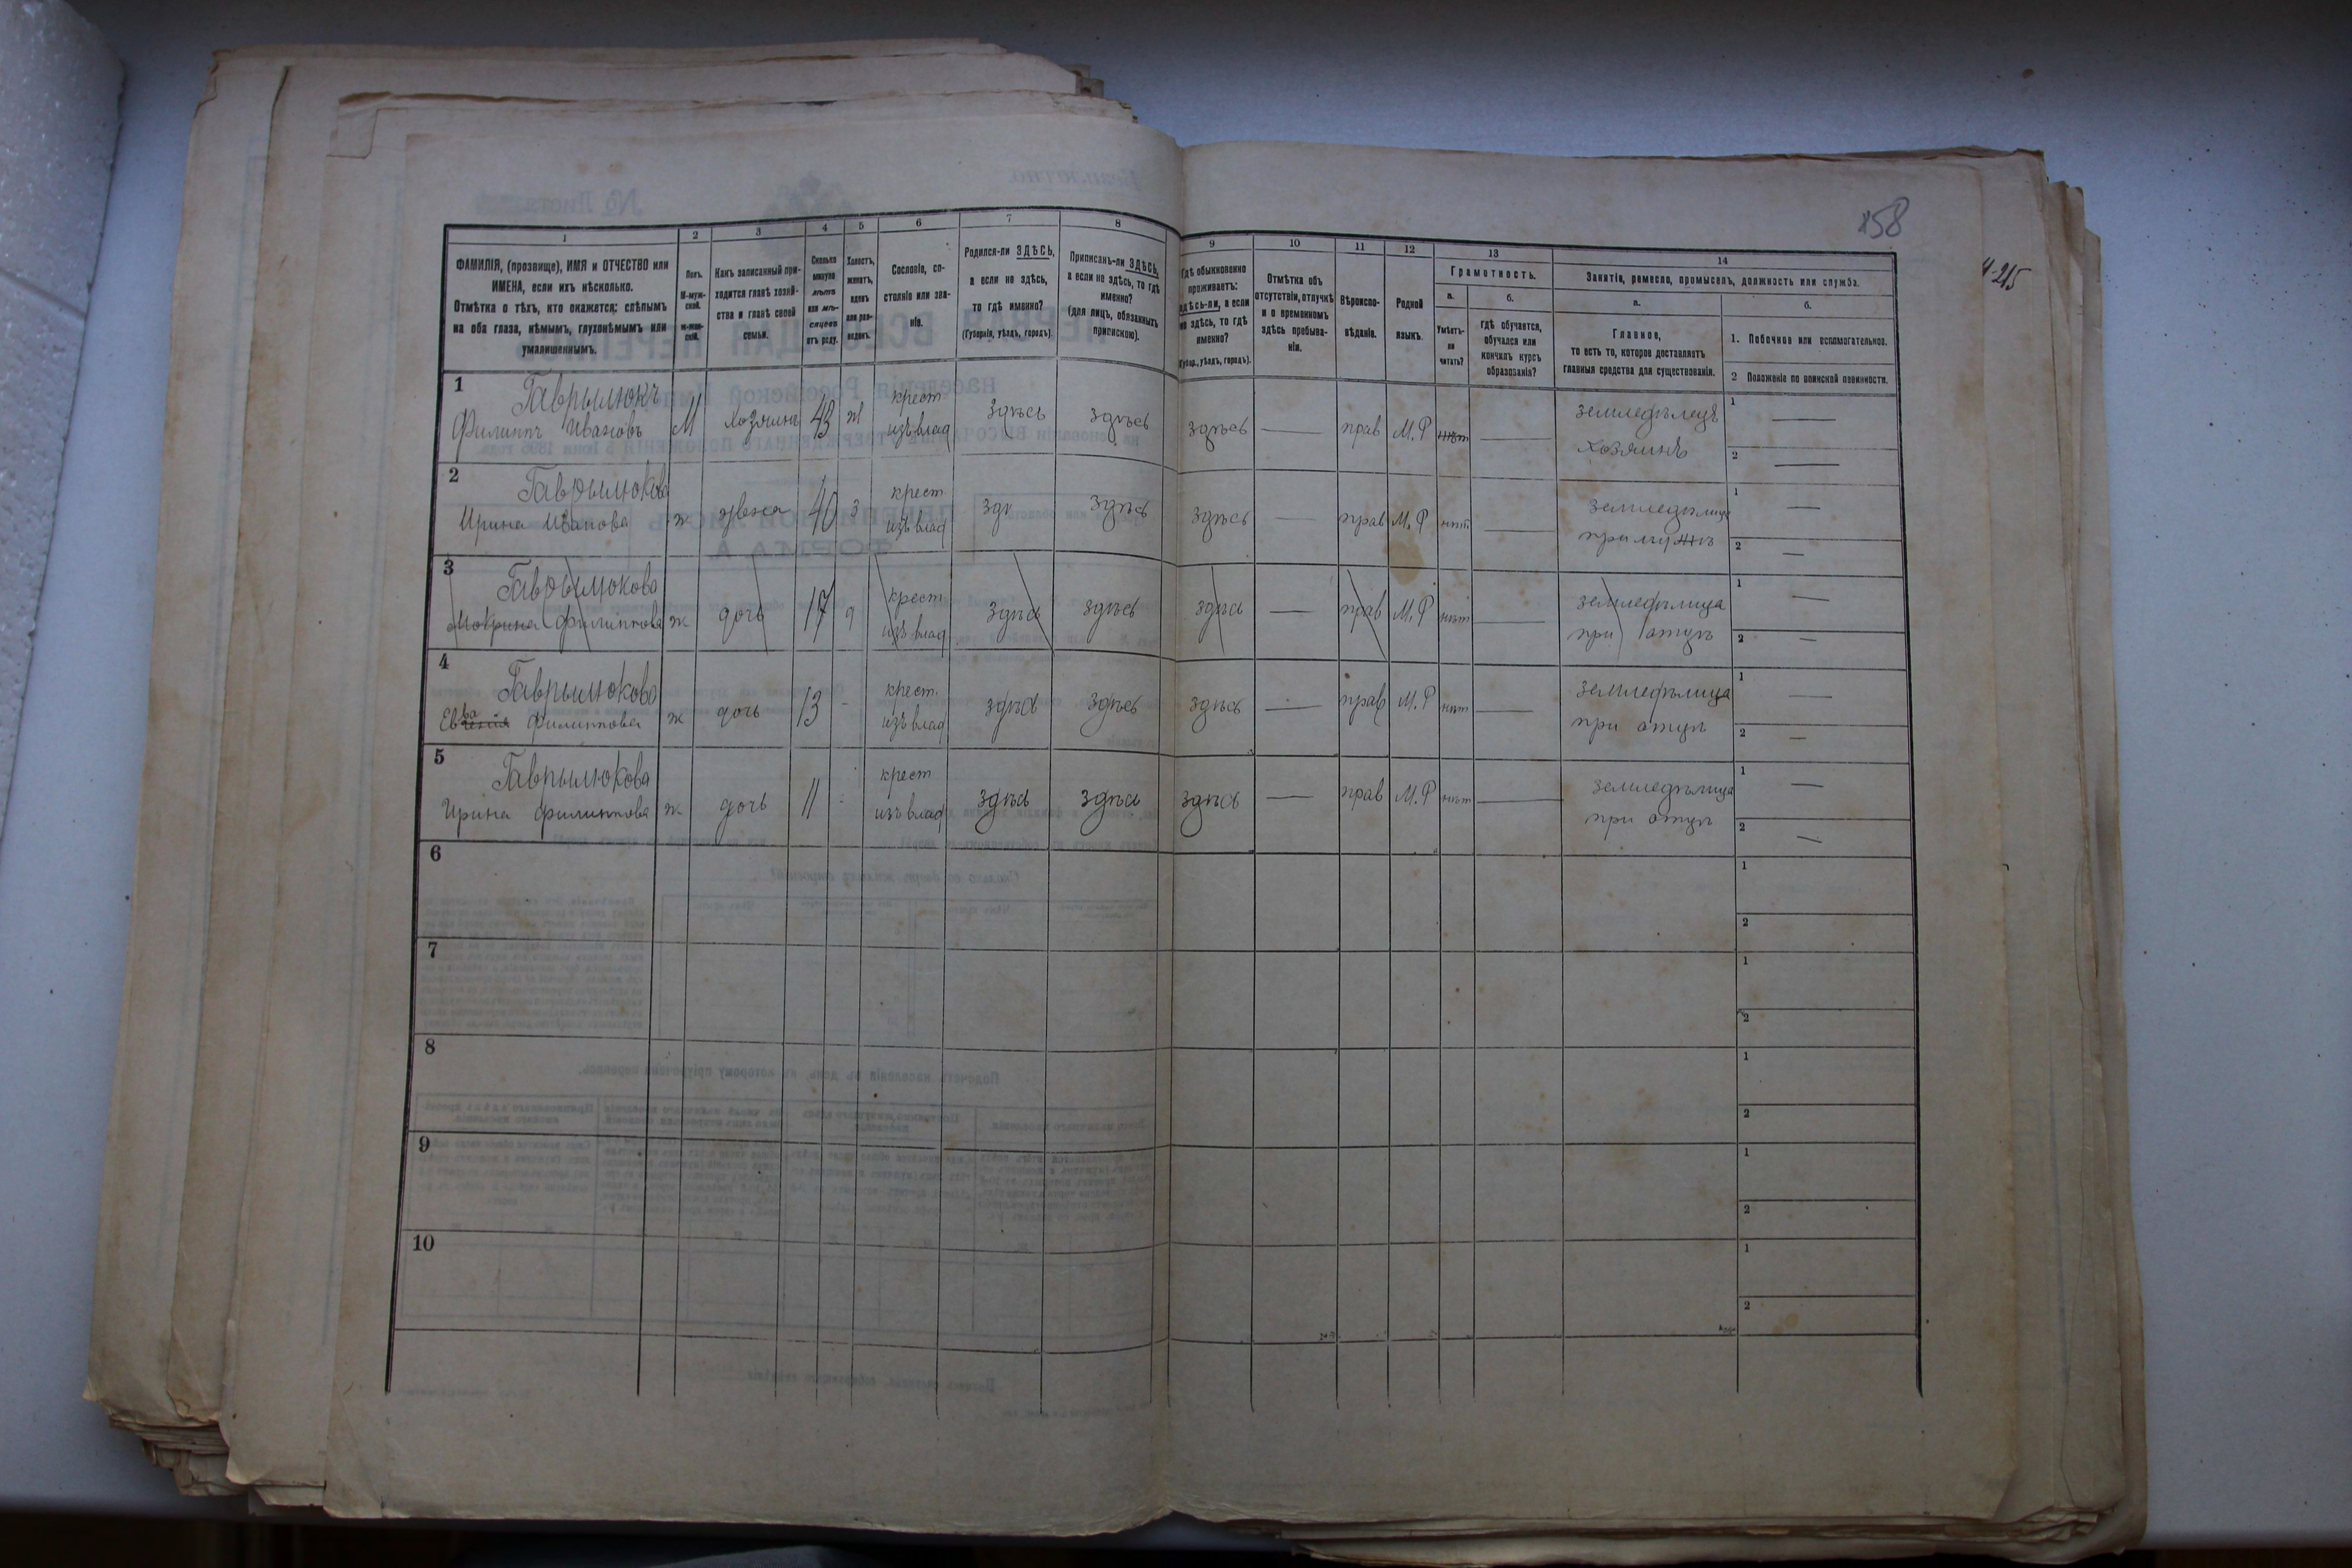 158
1
2
3
4
5
6
7
8
9
10
11
12
13
14
ФАМИЛІЯ, (прозвище), ИМЯ и ОТЧЕСТВО или ИМЕНА, если ихъ нѣсколько.
Отмѣтка о тѣхъ, кто окажется: слѣпымъ на оба глаза, нѣмымъ, глухонѣмымъ или умалишеннымъ.
Полъ.
М-муж-
ской.
ж-жен-
скій.
Какъ записанный при-
ходится главѣ хозяй-
ства и главѣ своей
семьи.
Сколько
минуло
лѣтъ
или мѣ-
сяцевъ
отъ роду.
Холостъ,
женатъ,
вдовъ
или раз-
веденъ.
Сословіе, со-
стояніе или зва-
ніе.
Родился-ли ЗДѢСЬ,
а если не здѣсь,
то гдѣ именно?
(Губернія, уѣздъ, городъ).
Приписанъ-ли ЗДѢСЬ,
а если не здѣсь, то гдѣ
именно?
(для лицъ, обязанныхъ
припискою).
Гдѣ обыкновенно
проживаетъ:
здѣсь-ли, а если
не здѣсь, то гдѣ
именно?
(Губер., уѣздъ, городъ).
Отмѣтка объ
отсутствіи, отлучкѣ
и о временномъ
здѣсь пребыва-
ніи.
Вѣроиспо-
вѣданіе.
Родной
языкъ.
Грамотность.
а.
Умѣетъ-
ли
читать?
б.
гдѣ обучается,
обучался или
кончилъ курсъ
образованія?
Занятіе, ремесло, промыселъ, должность или служба.
а.
Главное,
то есть то, которое доставляетъ
главныя средства для существованія.
б.
1. Побочное или вспомогательное.
2 Положеніе по воинской повинности.
1 Гаврылюкъ крест земледѣлецъ 1 —
Филиппъ Ивановъ М хозяинъ 43 ж изъ влад здѣсь здѣсь здѣсь — прав М.Р нѣт — хозяинъ 2 —
2 Гаврылюкова крест земледѣлица 1 —
Ирина Иванова ж жена 40 з изъ влад зд здѣсь здѣсь — прав М.Р нѣт — при мужѣ 2 —
3 Гаврылюкова крест земледѣлица 1 —
Филиппова ж дочь 17 д изъ влад здѣсь здѣсь здѣсь — прав М.Р нѣт — при отцѣ 2 —
4 Гаврылюкова крест. земледѣлица 1 —
Евва Филиппова ж дочь 13 - изъ влад здѣсь здѣсь здѣсь — прав М.Р нѣт — при отцѣ 2 —
5 Гаврылюкова крест земледѣлица 1 —
Ирина Филиппова ж дочь 11 - изъ влад здѣсь здѣсь здѣсь — прав М.Р нѣт — при отцѣ 2 —
6 1
2
7 1
2
8 1
2
9 1
2
10 1
2